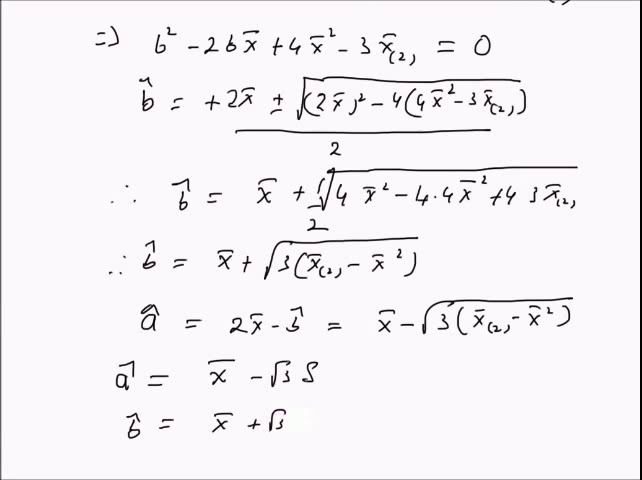 => b² - 2b x̄ + 4x̄² - 3x̄₍₂₎ = 0
b̂ = +2x̄ ± √((2x̄)² - 4(4x̄² - 3x̄₍₂₎)) / 2
∴ b̂ = x̄ + 1/2 √(4x̄² - 4·4x̄² + 4 3x̄₍₂₎
∴ b̂ = x̄ + √(3(x̄₍₂₎ - x̄²))
â = 2x̄ - b̂ = x̄ - √(3(x̄₍₂₎ - x̄²))
â = x̄ - √3 S
b̂ = x̄ + √3